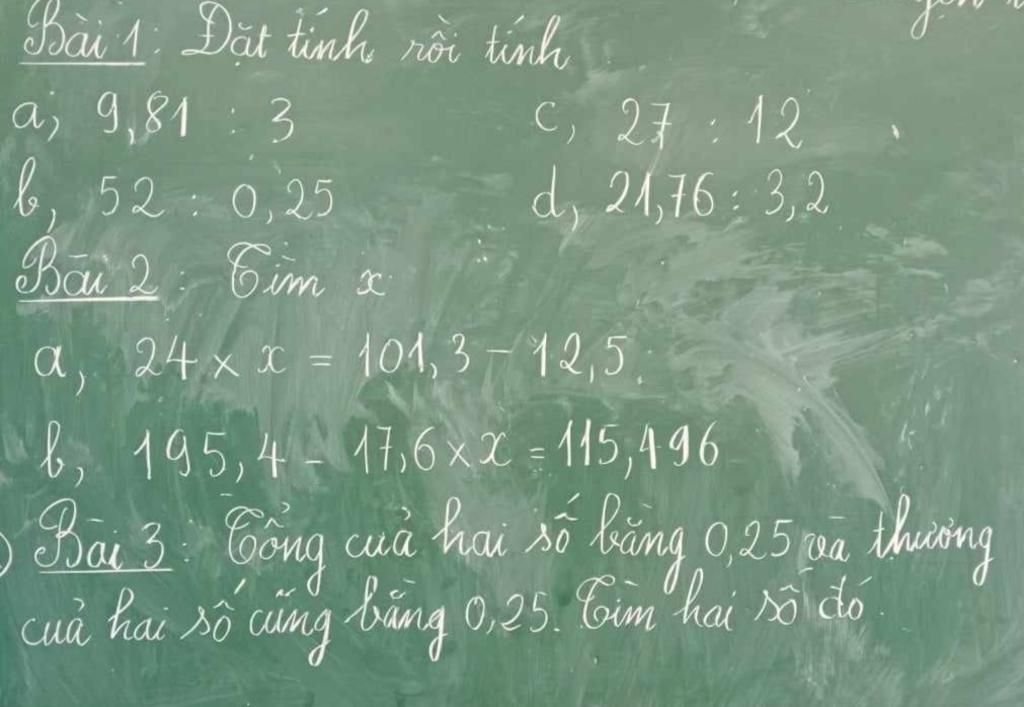 Bài 1: Đặt tính rồi tính
a, 9,81 : 3 c, 27 : 12
b, 52 : 0,25 d, 21,76 : 3,2
Bài 2: Tìm x
a, 24 × x = 101,3 - 12,5
b, 195,4 - 17,6 × x = 115,496
Bài 3: Tổng của hai số bằng 0,25 và thương
của hai số cũng bằng 0,25. Tìm hai số đó.